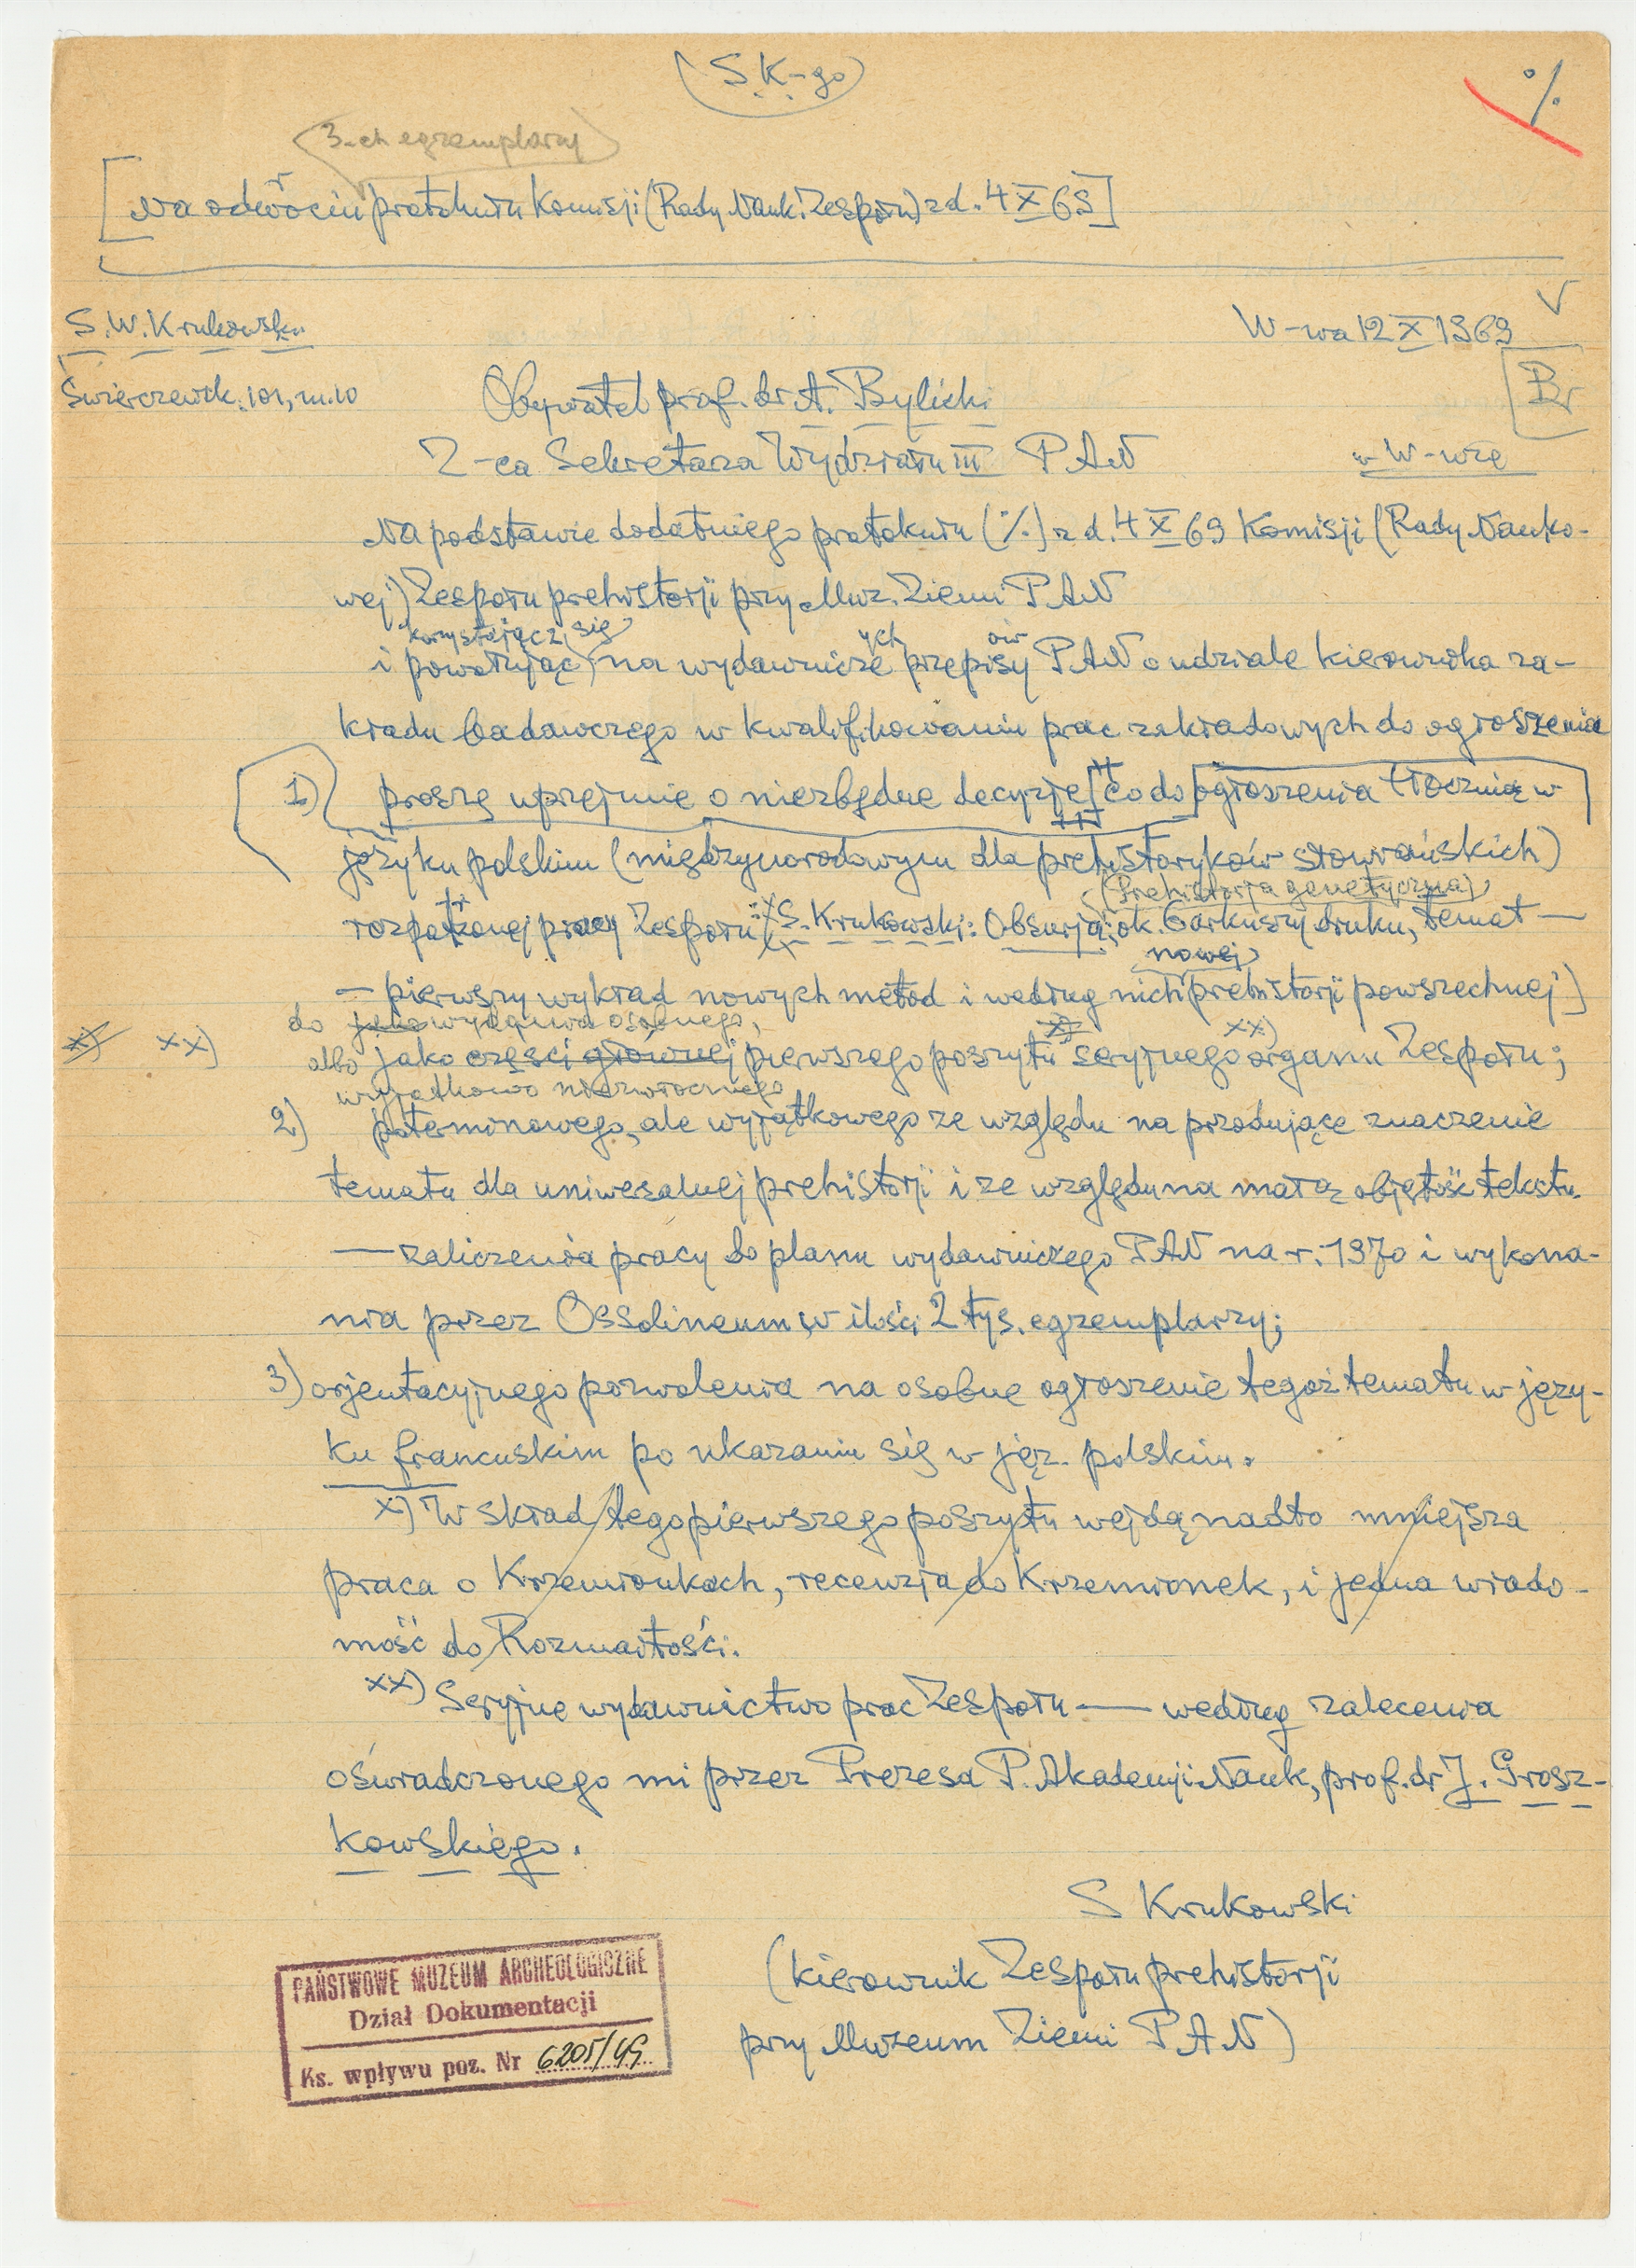 (S. K-go)
%
3-ch egzemplarzy
[Na odwrociu protokułu Komisji (Rady Nauk. Zespołu) z d. 4 X 69]
S. W. Krukowski
W-wa 12 X 1969
V
Świerczewsk. 101, m. 10
Br
Obywatel prof. dr A. Bylicki
Z-ca Sekretarza Wydziału III PAN
w W-wie
Na podstawie dodatniego protokułu (%) z d. 4 X 69 Komisji (Rady Nauko-
wej) Zespołu prehistorji przy Muz. Ziemi PAN
korzystając z, się ych ów
i powołując na wydawnicze przepisy PAN o udziale kierownika za-
kładu badawczego w kwalifikowaniu prac zakładowych do ogłoszenia
1) proszę uprzejmie o niezbędne decyzje [co do ogłoszenia tłocznią w
języku polskim (międzynarodowym dla prehistoryków słowiańskich)
(Prehistorja genetyczna)
rozpatrzonej pracy Zespołu: S. Krukowski: Obsurja; ok. 6 arkuszy druku, temat —
nowej
— pierwszy wykład nowych metod i według nich prehistorji powszechnej]
do jako wydawa osobnego,
x) xx) albo jako części głównej pierwszego poszytu x) seryjnego xx) organu Zespołu;
wyjątkowo niezwłocznego
2) poterminowego, ale wyjątkowego ze względu na przodujące znaczenie
tematu dla uniwesalnej prehistorji i ze względu na małą objętość tekstu
— zaliczenia pracy do planu wydawniczego PAN na r. 1970 i wykona-
nia przez Ossolineum w ilości 2 tys. egzemplarzy;
3) orjentacyjnego pozwolenia na osobne ogłoszenie tegoż tematu w języ-
ku francuskim po ukazaniu się w jęz. polskim.
x) W skład tego pierwszego poszytu wejdą nadto mniejsza
praca o Krzemionkach, recenzja do Krzemionek, i jedna wiado-
mość do Rozmaitości.
xx) Seryjne wydawnictwo prac Zespołu — według zalecenia
oświadczonego mi przez Prezesa P. Akademji Nauk, prof. dr J. Grosz-
kowskiego.
S Krukowski
(kierownik Zespołu prehistorji
przy Muzeum Ziemi PAN)
PAŃSTWOWE MUZEUM ARCHEOLOGICZNE
Dział Dokumentacji
Ks. wpływu poz. Nr 6205/49